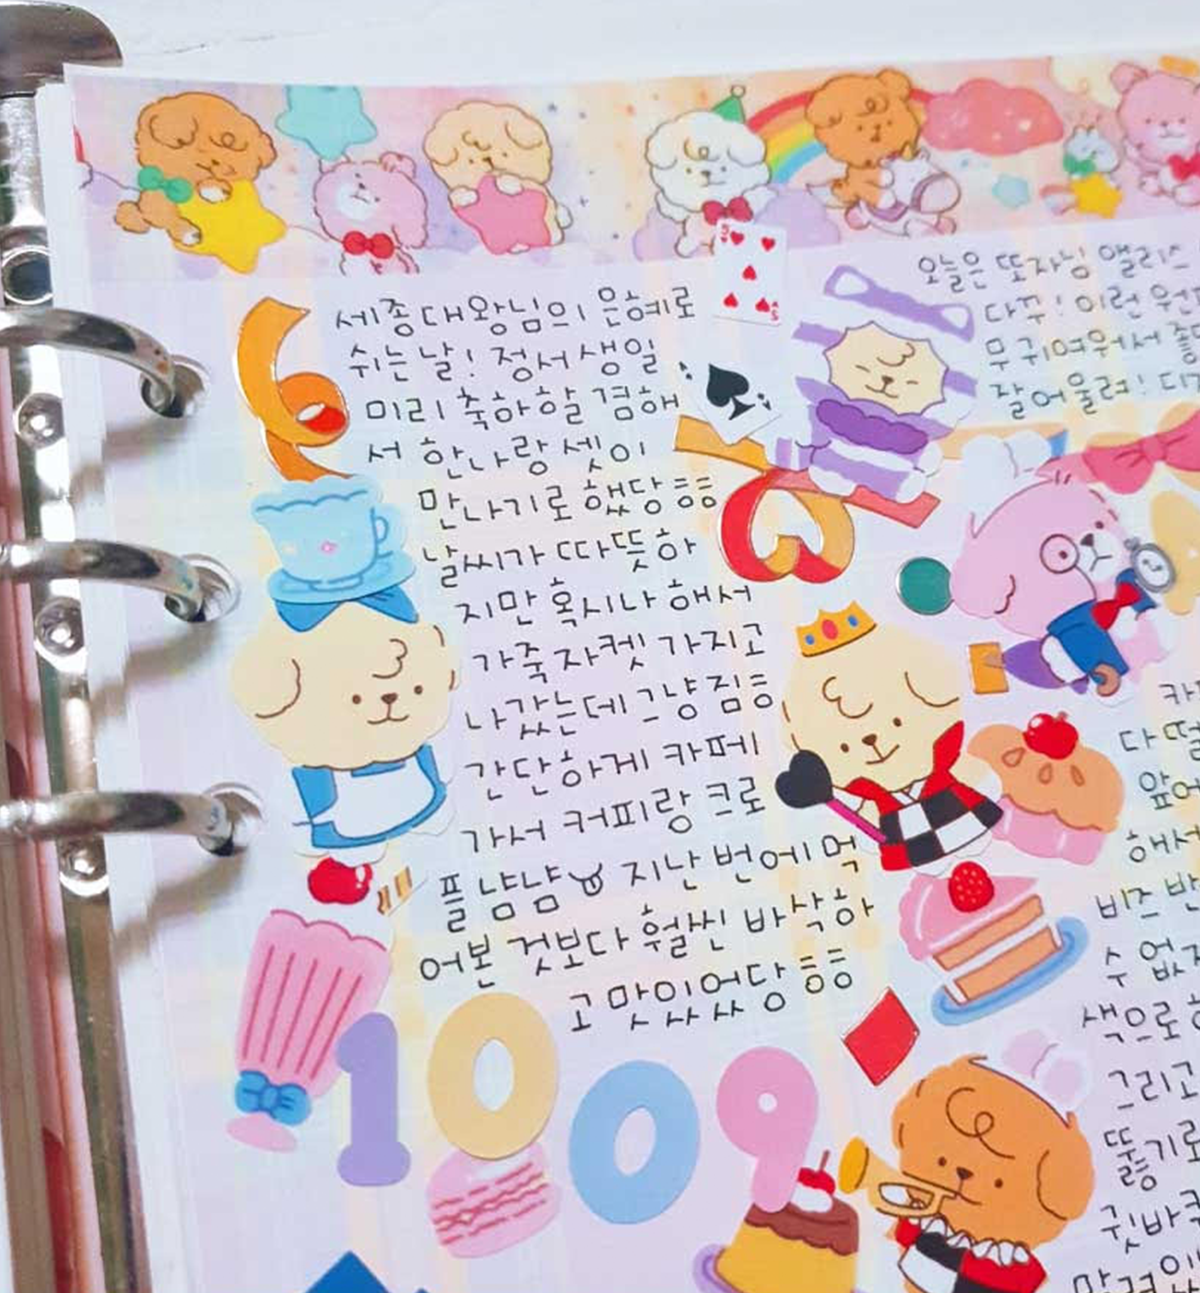 세종대왕님의 은혜로
쉬는 날! 정서 생일
미리 축하할 겸해
서 한나랑 셋이
만나기로 했당 응응
날씨가 따뜻하
지만 혹시나 해서
가죽자켓 가지고
나갔는데 그냥 짐응
간단하게 카페
가서 커피랑 크로
플 냠냠 지난 번에 먹
어본 것보다 훨씬 바삭하
고 맛있었당 응응
1009
오늘은 또자님 앨리스
다꾸! 이런
무 귀여워서
잘어울려!
해서
비즈
수 없
색으로
그리고